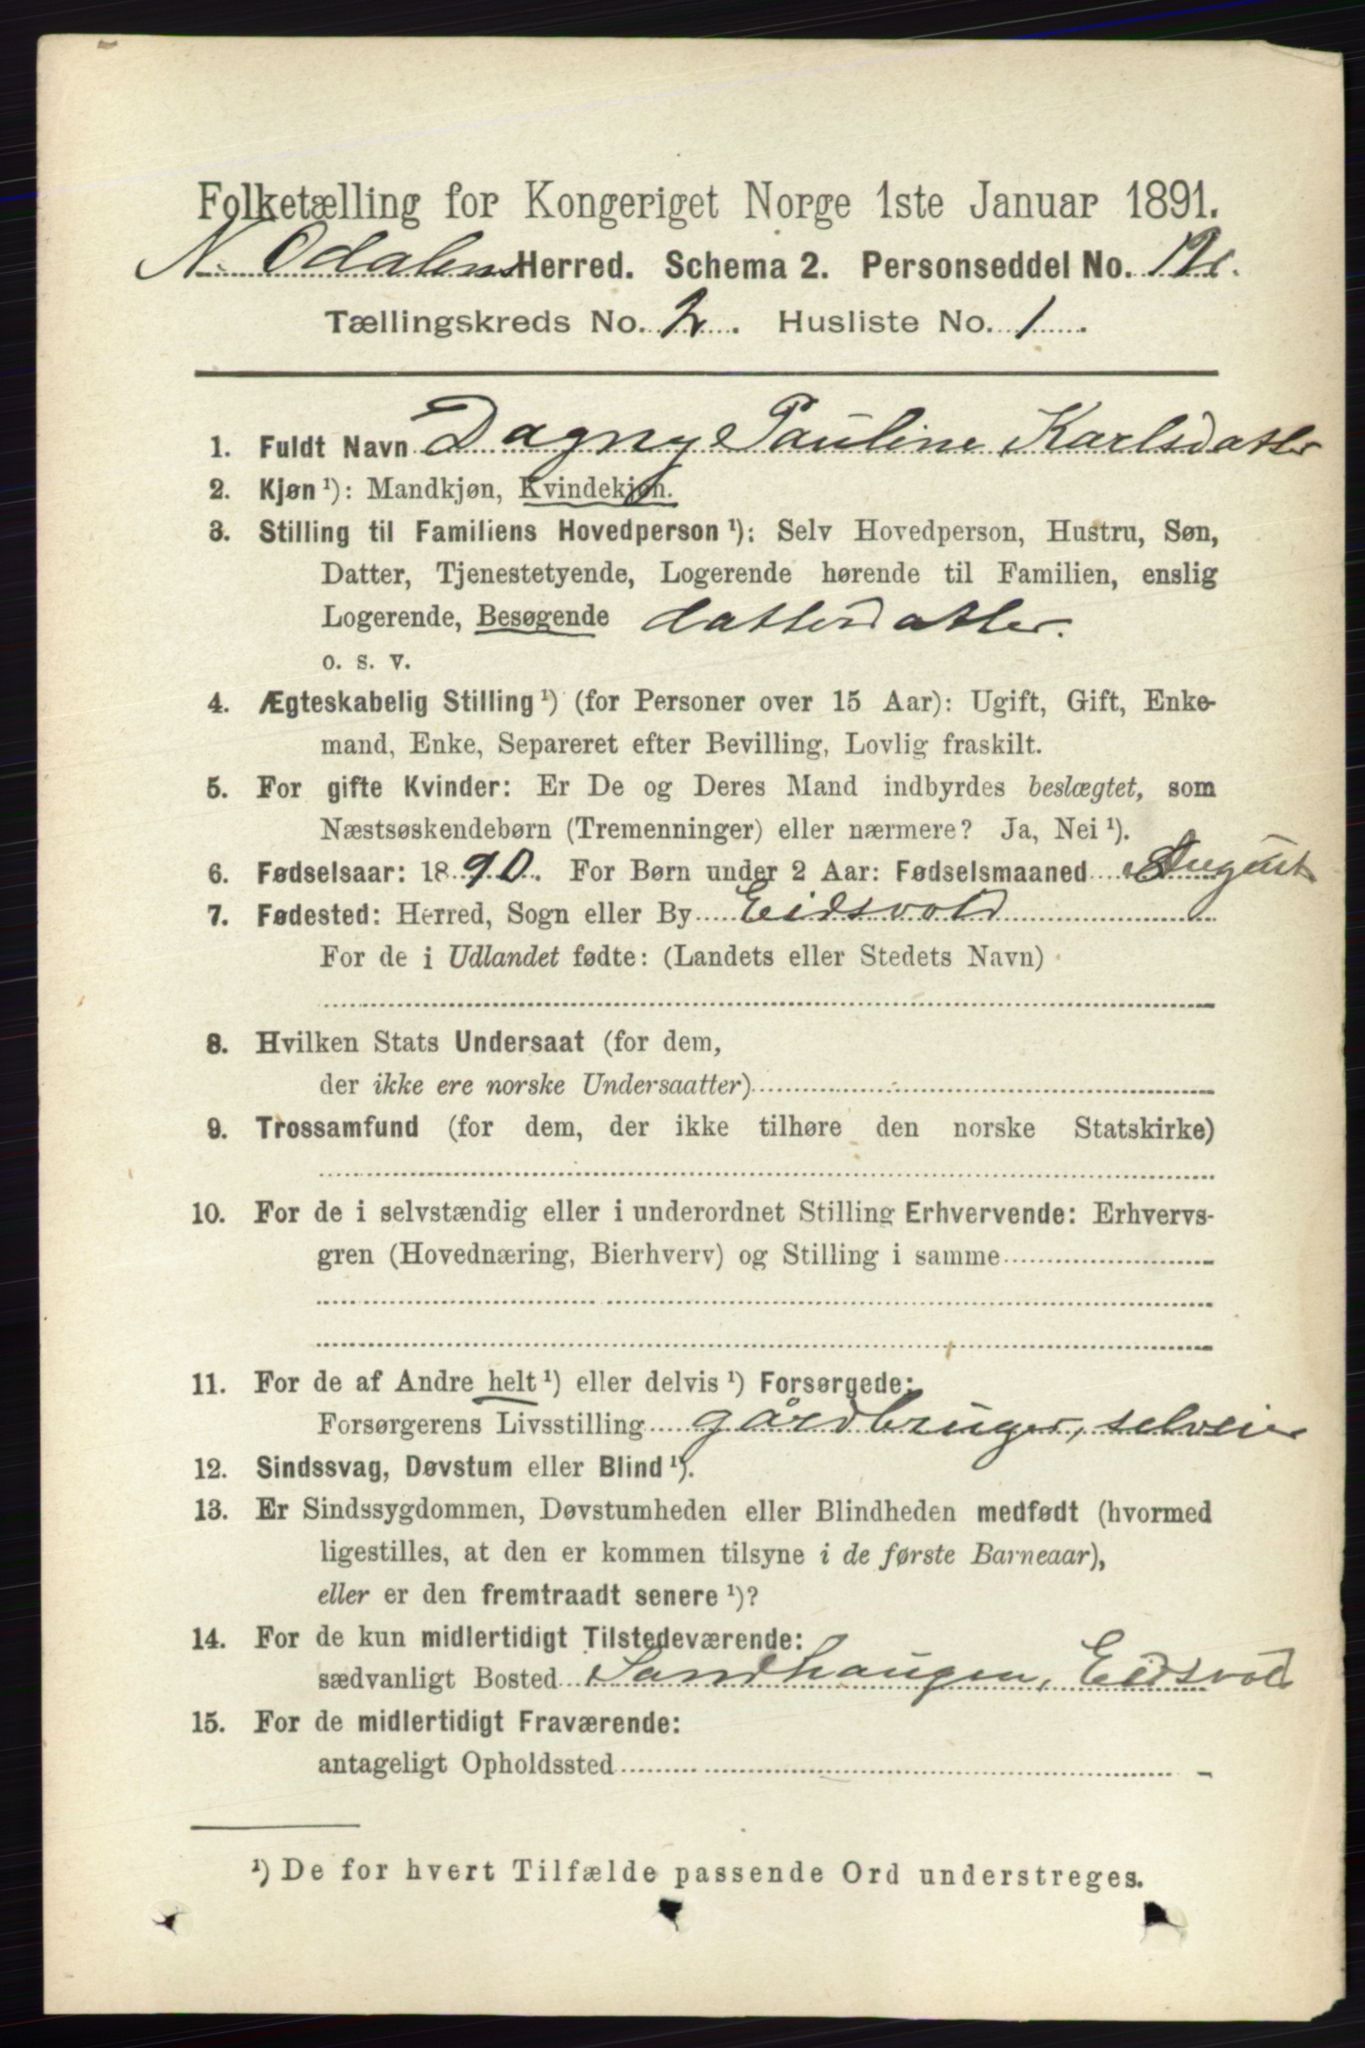 Folketælling for Kongeriget Norge 1ste Januar 1891.
N. Odalens Herred. Schema 2. Personseddel No.
Tællingskreds No. 2. Husliste No. 1.
1. Fuldt Navn Dagny Pauline Karlsdatter
2. Kjøn ¹): Mandkjøn, Kvindekjøn.
3. Stilling til Familiens Hovedperson ¹): Selv Hovedperson, Hustru, Søn,
Datter, Tjenestetyende, Logerende hørende til Familien, enslig
Logerende, Besøgende datterdatter.
o. s. v.
4. Ægteskabelig Stilling ¹) (for Personer over 15 Aar): Ugift, Gift, Enke-
mand, Enke, Separeret efter Bevilling, Lovlig fraskilt.
5. For gifte Kvinder: Er De og Deres Mand indbyrdes beslægtet, som
Næstsøskendebørn (Tremenninger) eller nærmere? Ja, Nei ¹).
6. Fødselsaar: 1890. For Børn under 2 Aar: Fødselsmaaned August
7. Fødested: Herred, Sogn eller By Eidsvold
For de i Udlandet fødte: (Landets eller Stedets Navn)
8. Hvilken Stats Undersaat (for dem,
der ikke ere norske Undersaatter)
9. Trossamfund (for dem, der ikke tilhøre den norske Statskirke)
10. For de i selvstændig eller i underordnet Stilling Erhvervende: Erhvervs-
gren (Hovednæring, Bierhverv) og Stilling i samme
11. For de af Andre helt ¹) eller delvis ¹) Forsørgede:
Forsørgerens Livsstilling gårdbruger, selveier
12. Sindssvag, Døvstum eller Blind ¹).
13. Er Sindssygdommen, Døvstumheden eller Blindheden medfødt (hvormed
ligestilles, at den er kommen tilsyne i de første Barneaar),
eller er den fremtraadt senere ¹)?
14. For de kun midlertidigt Tilstedeværende:
sædvanligt Bosted Sandhaugen, Eidsvold
15. For de midlertidigt Fraværende:
antageligt Opholdssted
¹) De for hvert Tilfælde passende Ord understreges.